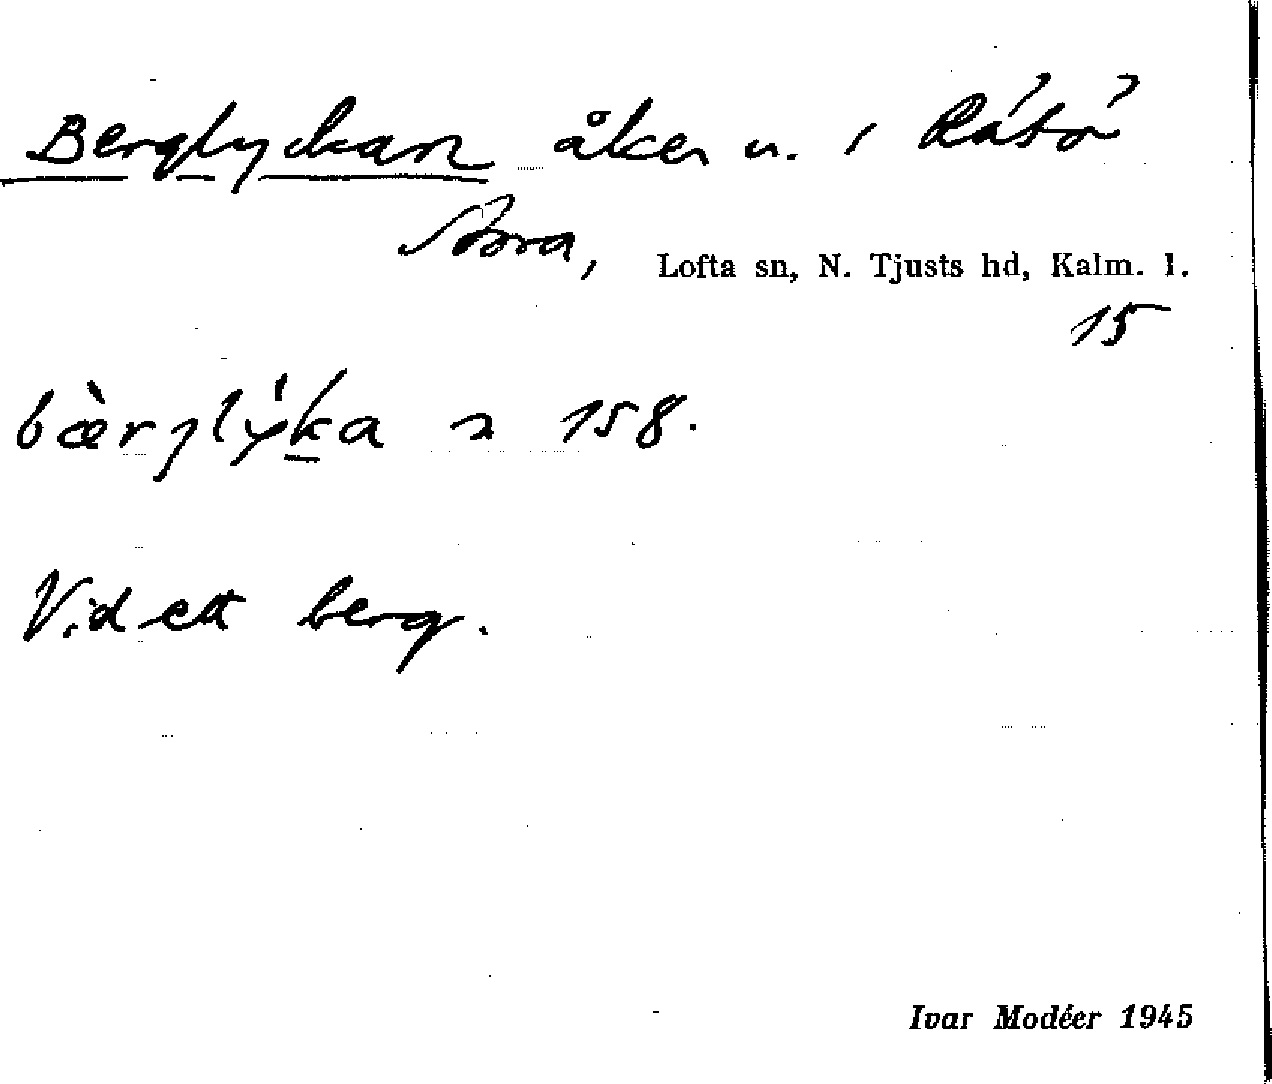 Berglyckan åker u. i Råsö
Stora, Lofta sn, N. Tjusts hd, Kalm. l.
15
bæ̀rjlýka 158.
Vid ett berg.
Ivar Modéer 1945